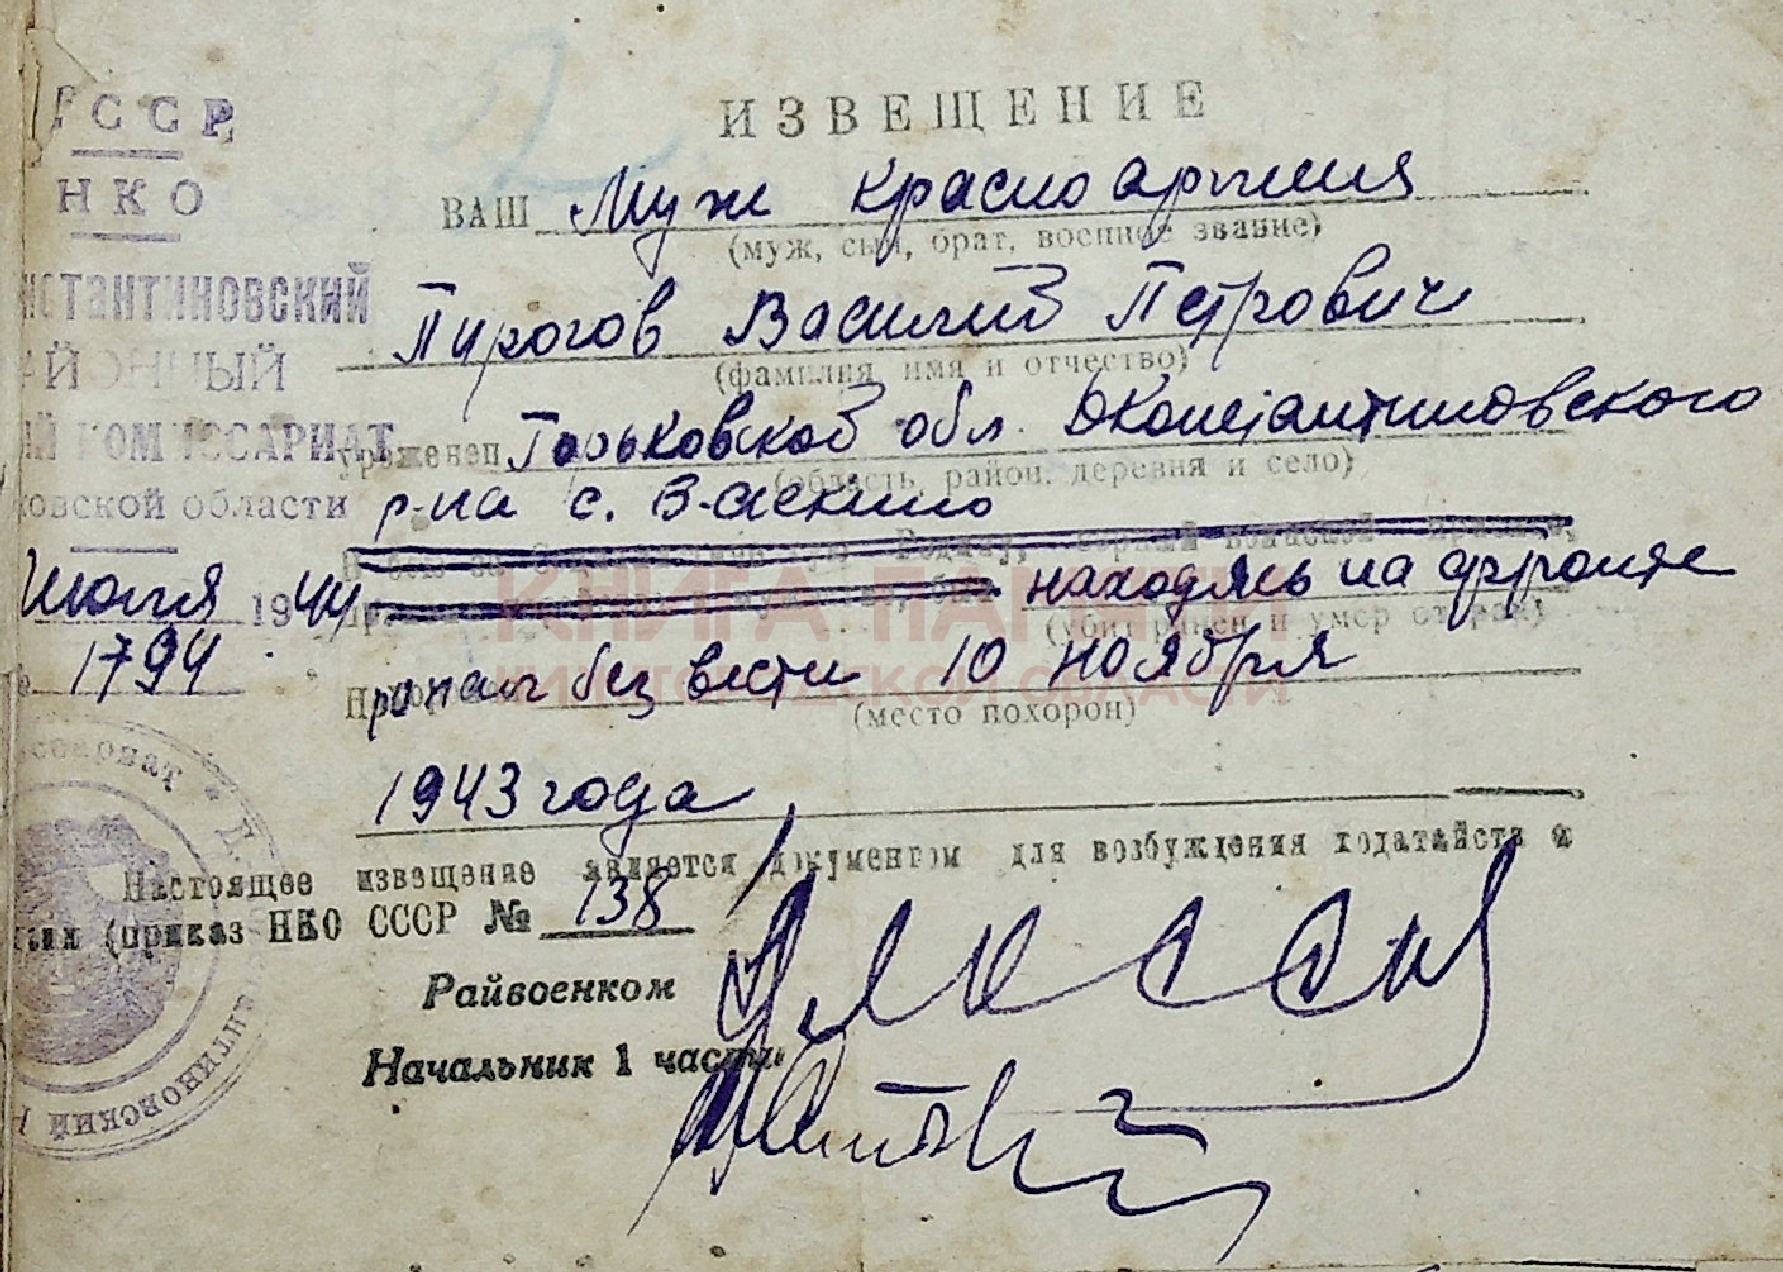 ИЗВЕЩЕНИЕ
ССР
НКО
нстантиновский
АЙОННЫЙ
ИЙ КОМИССАРИАТ
ковской области
Июля 1944
1794
ВАШ Муж красноармеец
(муж, сын, брат, военное звание)
Пирогов Василий Петрович
(фамилия, имя и отчество)
уроженец Горьковской обл. Дконстантиновского
(область, район, деревня и село)
р-на с.
в бою за Социалистическую Родину, верный воинской присяге,
находясь на фронте
(убит, ранен и умер от ран)
пропал без вести 10 ноября
(место похорон)
1943 года
Настоящее извещение является документом для возбуждения ходатайств о
(приказ НКО СССР № 138
Райвоенком
Начальник 1 части
КНИГА ПАМЯТИ
НИЖЕГОРОДСКОЙ ОБЛАСТИ